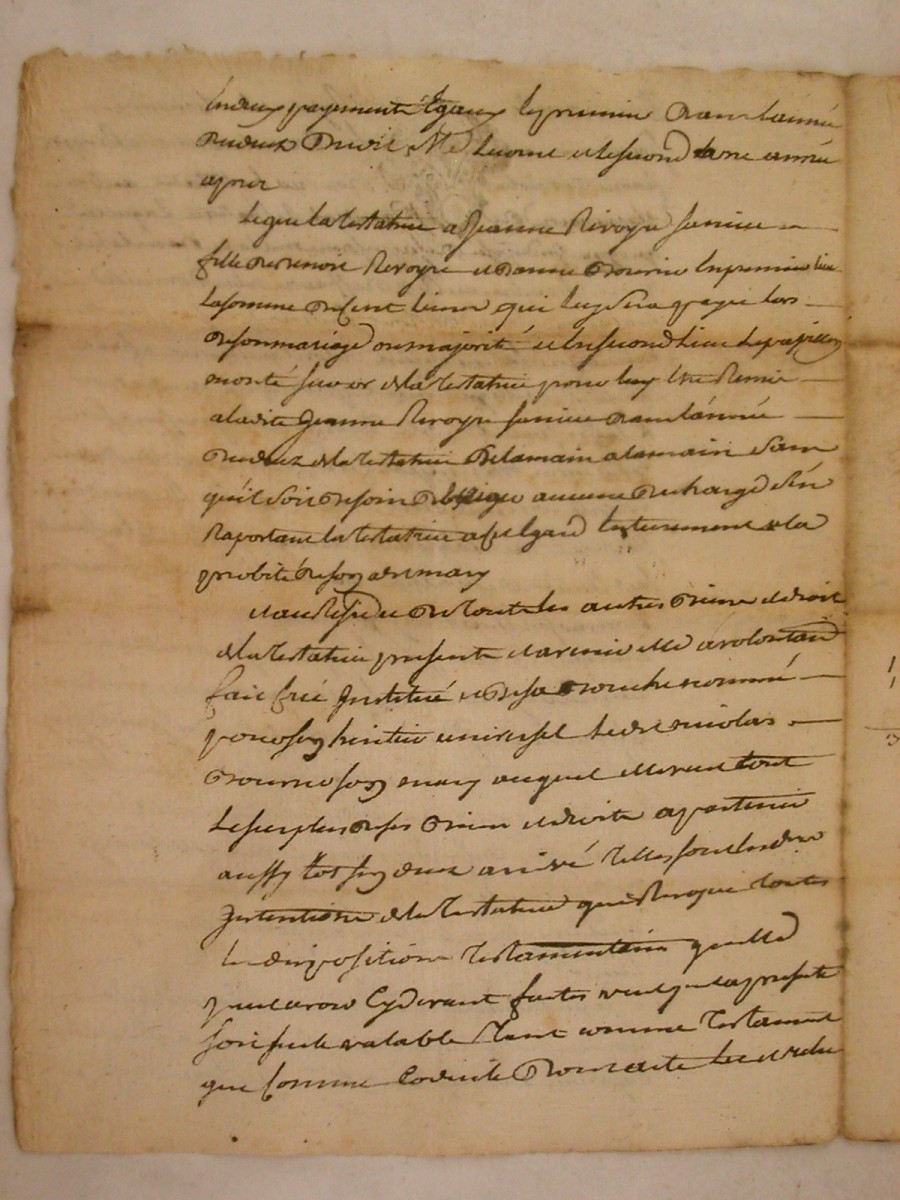 en deux payements Egaux le premier dans l'année
du deux dudit Me et le second une année
apres
Legue la testatrice a Jeanne Revoyre
fille de Benoit Revoyre et d'anne en premier lieu
la somme de Cent livres qui luy sera payée lors
de son mariage ou majorité et En second Lieu Le papillon
monté sur or de la testatrice pour luy Etre Remis
a ladite Jeanne Revoyre dans l'année
du deces de la testatrice de la main a la main sans
qu'il soit besoin d'Exiger aucune decharge s'en
Raportant la testatrice a cet egard Entierement a la
probité de son dit mary
et au Residu de Toutes les autres biens et droits
de la testatrice presents et avenir elle a volontairement
fait créé Institué et de sa bouche nommé
pour son heritier universel Ledit nicolas
son mary auquel elle veut tout
Le surplus de ses biens et droits apartenir
aussy tot son deces arrivé Telles sont les dernieres
Intentions de la testatrice qui Revoque toutes
les dispositions Testamentaires quelle
peut avoir Cy devant faites veut que la presente
soit seule valable tant comme Testament
que comme Codicile